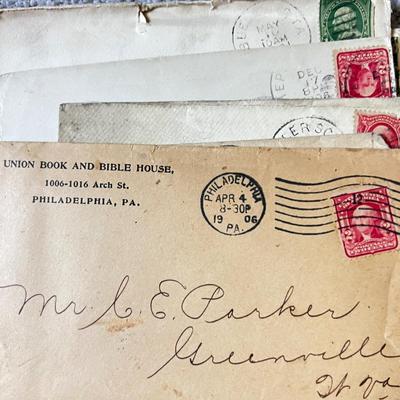 MAY
10 AM
DEC
UNION BOOK AND BIBLE HOUSE,
1006-1016 Arch St.
PHILADELPHIA, PA.
PHILADELPHIA
APR 4
8-30P
1906
PA.
Mr. C. E. Parker
Greenville
W. Va